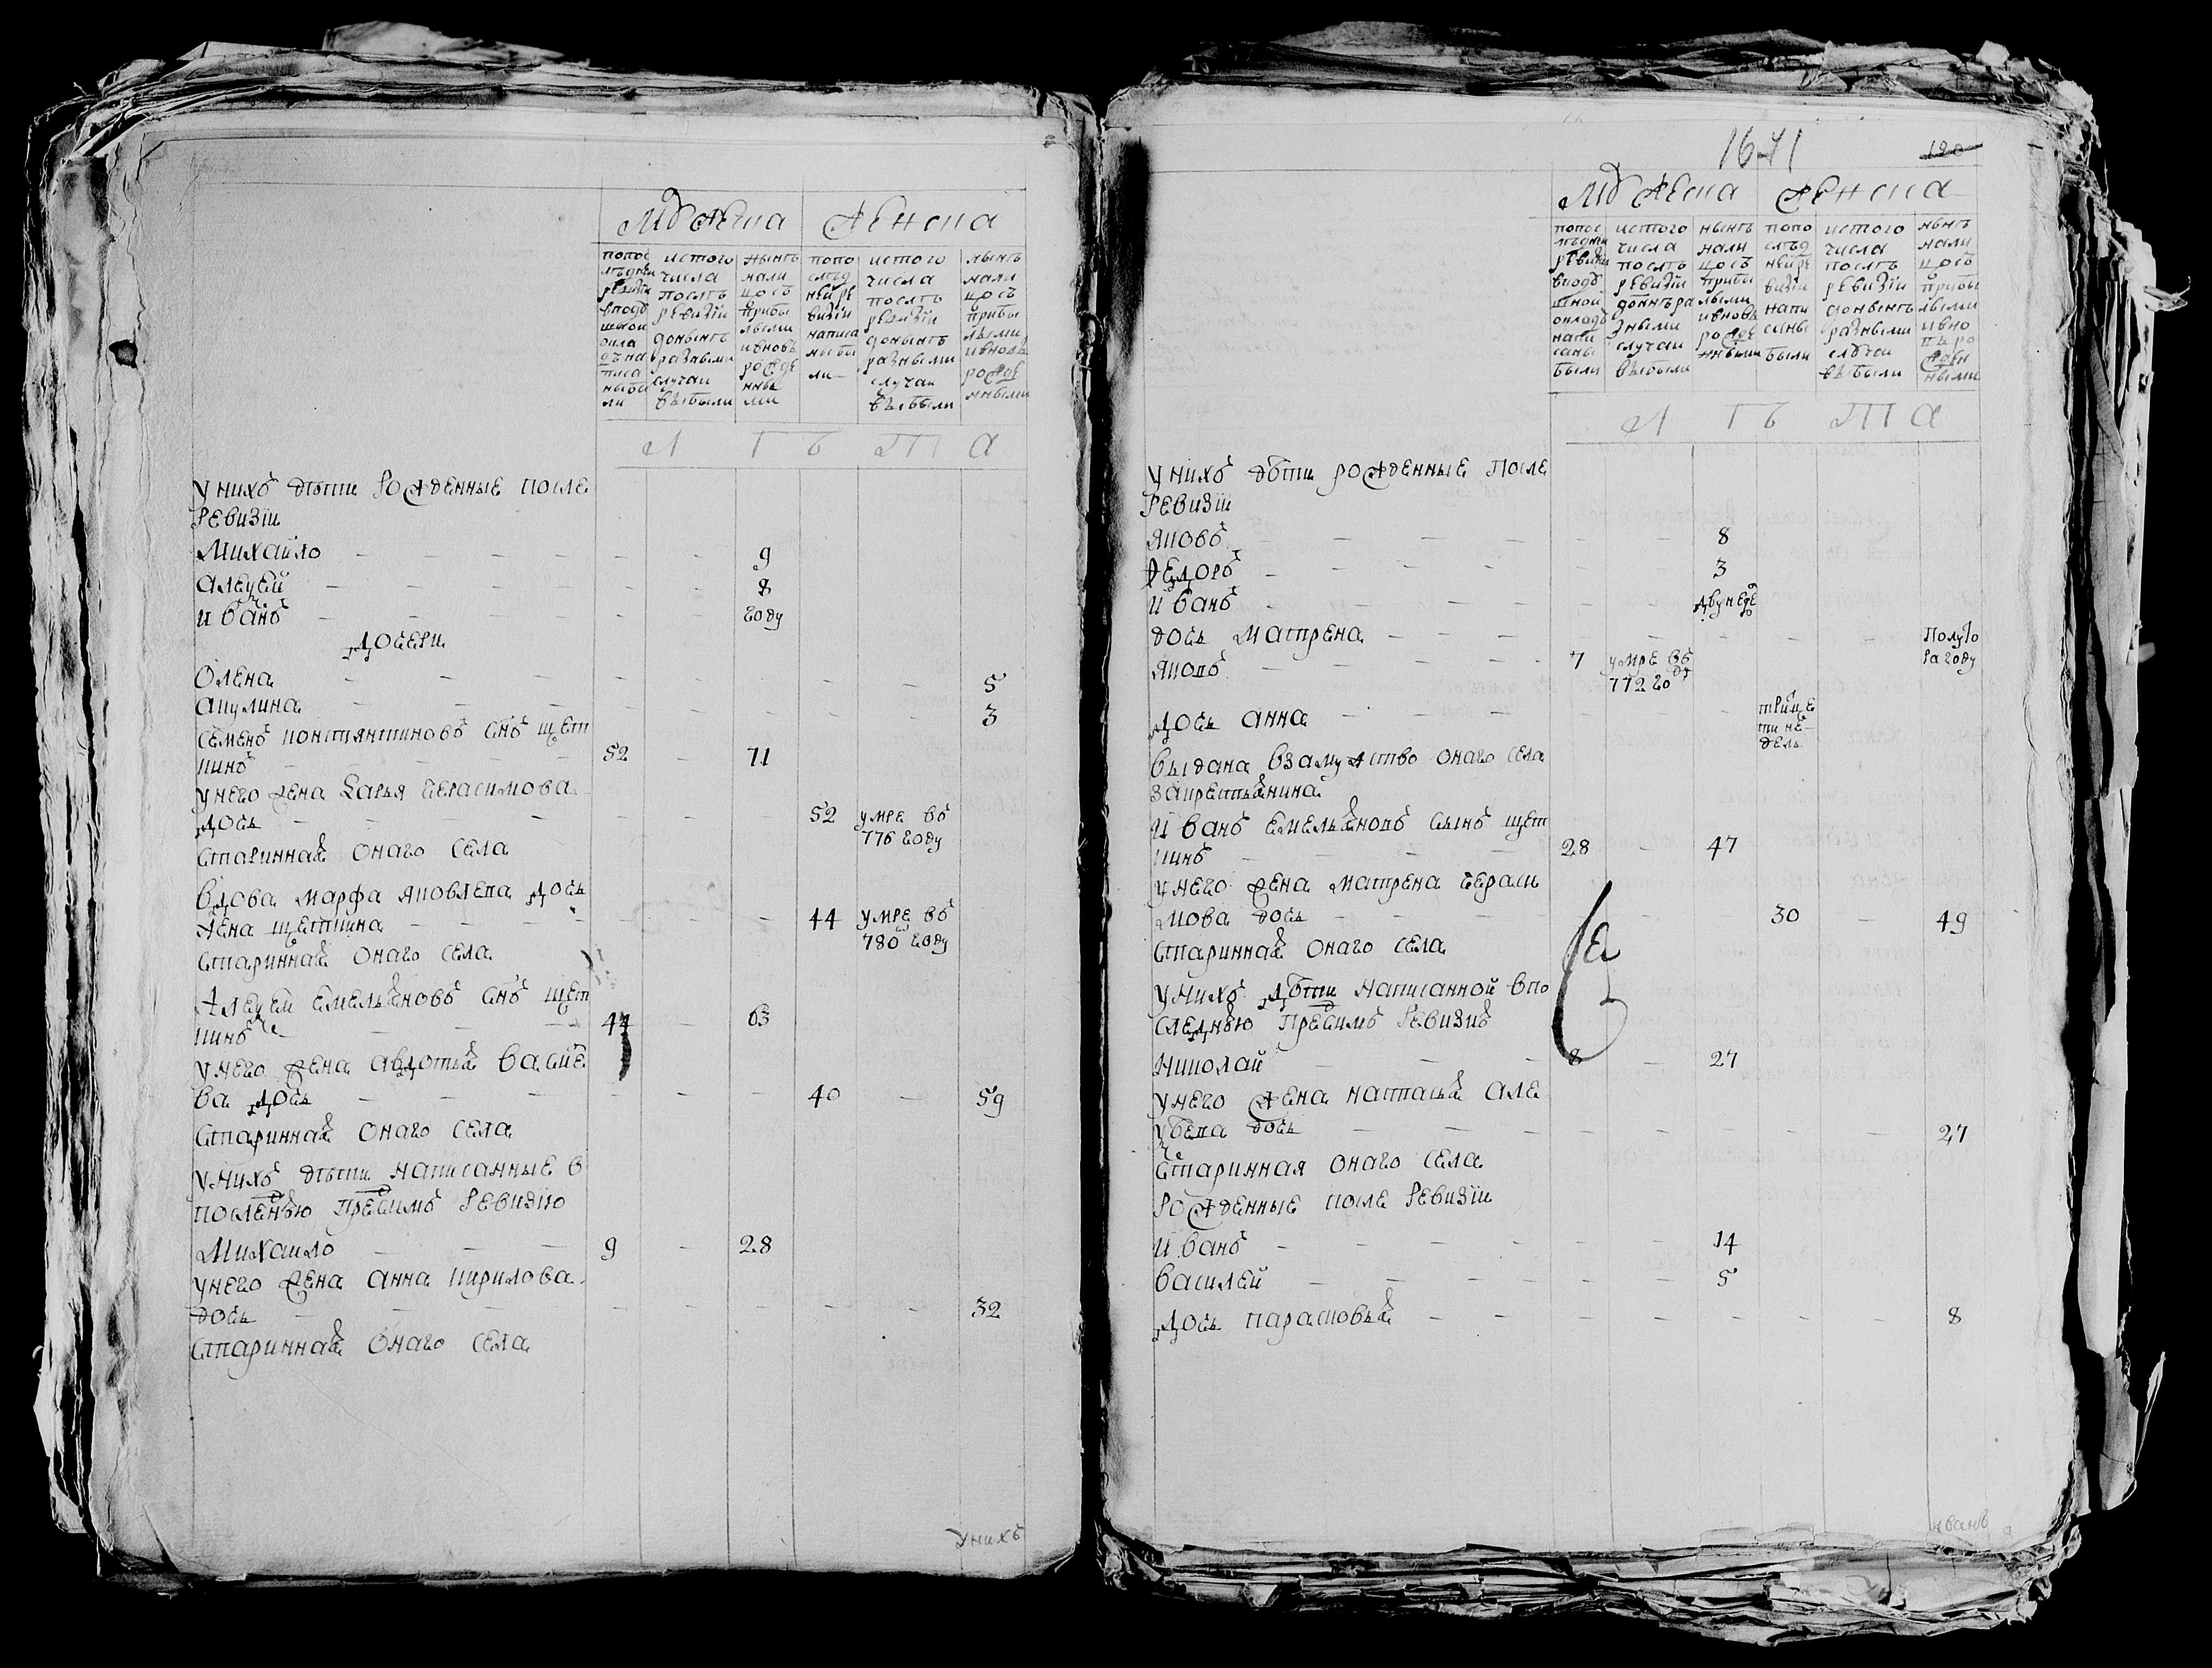 мужеска женска
попос лѣдней ревизіи вподу шной окла дѣ на писа ны бы ли
истого числа послѣ ревизіи донынѣ разными случаи выбыли
нынѣ нали цо съ прибы лыми ивновь рожде нны ми
попо слѣд ней ре визіи написа ны бы ли
истого числа послѣ ревизіи донынѣ разными случаи выбыли
нынѣ нали цо съ прибы лыми ивновь рожде нными
л ѣ т а
унихъ дѣти рожденные после
ревизіи
михайло 9
алеѯей 8
иванъ году
дочери
олена 5
акулина 3
семенъ константиновъ снъ щет
кинъ 52 71
унего жена дарья герасимова
дочь 52 умре въ 776 году
стариннаѧ онаго села
вдова марфа яковлева дочь
жена щеткина 44 умре въ 780 году
стариннаѧ онаго села
алеѯей емельѧновъ снъ щет
кинъ 44 63
унего жена авдотьѧ василе
ва дочь 40 59
стариннаѧ онаго села
унихъ дѣти написанные в
последнюю пресимъ ревизию
михаило 9 28
унего жена анна кирилова
дочь 32
стариннаѧ онаго села
унихъ
1641 120
мужеска женска
попос лѣдней ревизіи вподу шной окладъ напи саны были
истого числа послѣ ревизіи донынѣ ра зными случаи выбыли
нынѣ нали цо съ прибы лыми ивновь рожде нными
попо слѣд ней ре визіи напи саны были
истого числа послѣ ревизіи донынѣ разными случаи выбыли
нынѣ нали цо съ прибы лыми ивно въ ро жден ными
л ѣ т а
унихъ дѣти рожденные после
ревизіи
яковъ 8
ѳедоръ 3
иванъ двунеде
дочь матрена полуто ра году
яковъ 7 умре въ 772 году
дочь анна трице ти не дель
выдана взамужство онаго села
закрестьѧнина
иванъ емельѧновъ сынъ щет
кинъ 28 47
унего жена матрена гераси
мова дочь 30 49
стариннаѧ онаго села
унихъ дѣти написанной впо
следнюю пресимъ ревизию
николай 8 27
унего жена настасьѧ але
ѯеева дочь 27
старинная онаго села
рожденные после ревизіи
иванъ 14
василей 5
дочь парасковьѧ 8
иванъ